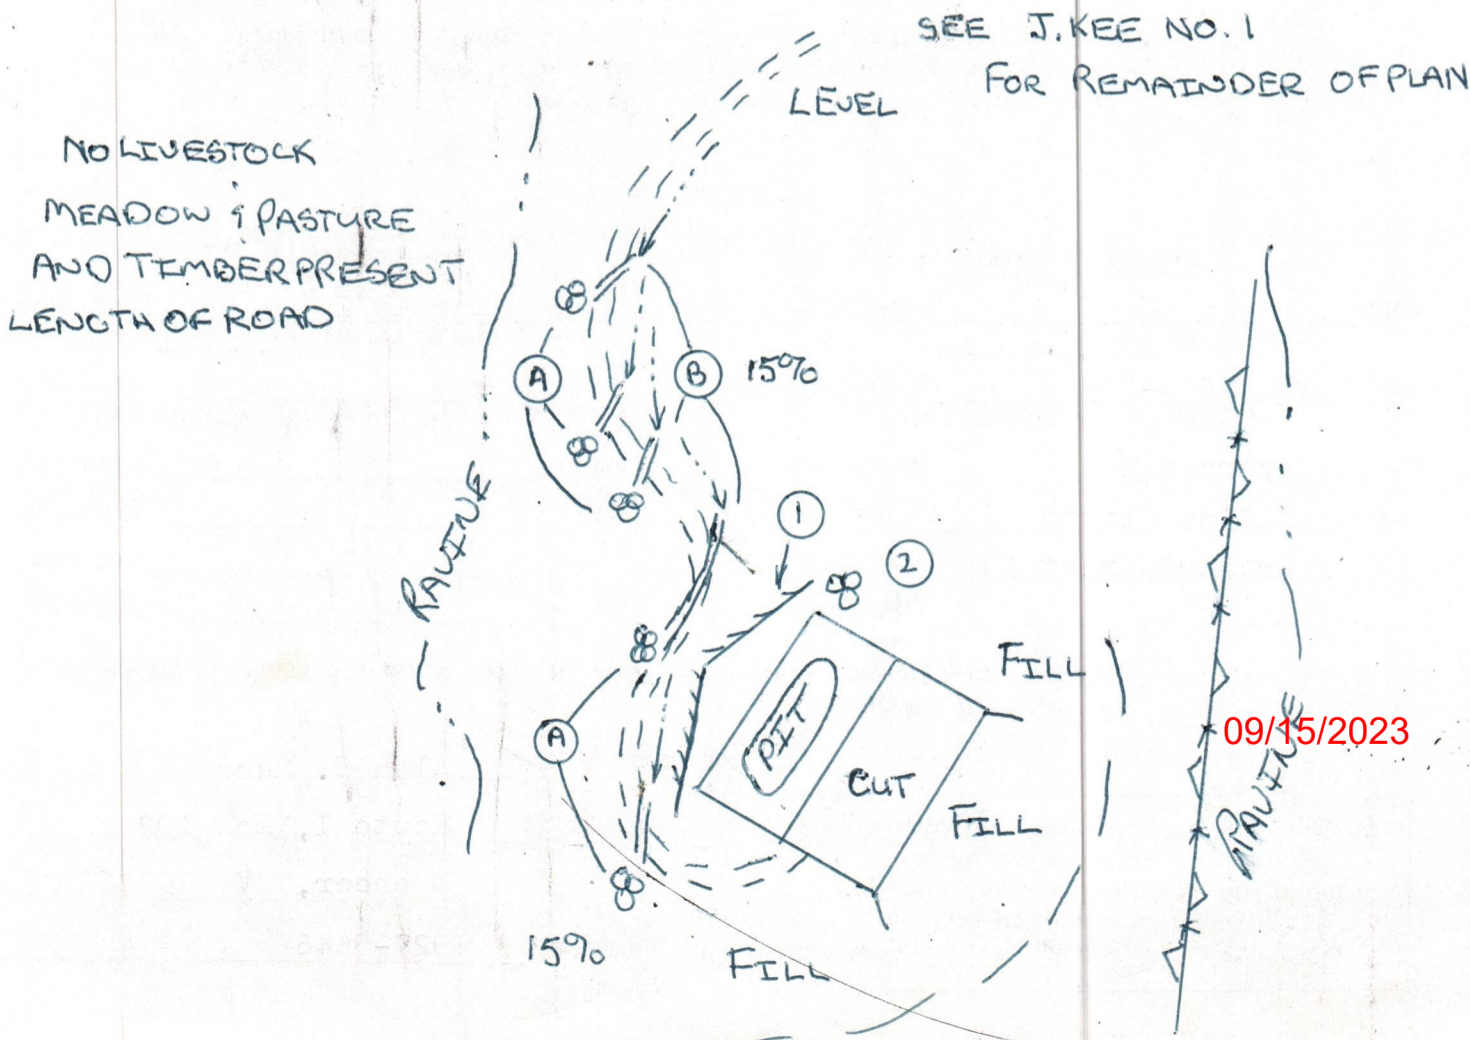 SEE J. KEE NO. 1
FOR REMAINDER OF PLAN
LEVEL
NO LIVESTOCK
MEADOW & PASTURE
AND TIMBER PRESENT
LENGTH OF ROAD
A
B
15%
RAVINE
1
2
FILL
PIT
CUT
A
FILL
09/15/2023
RAVINE
15%
FILL